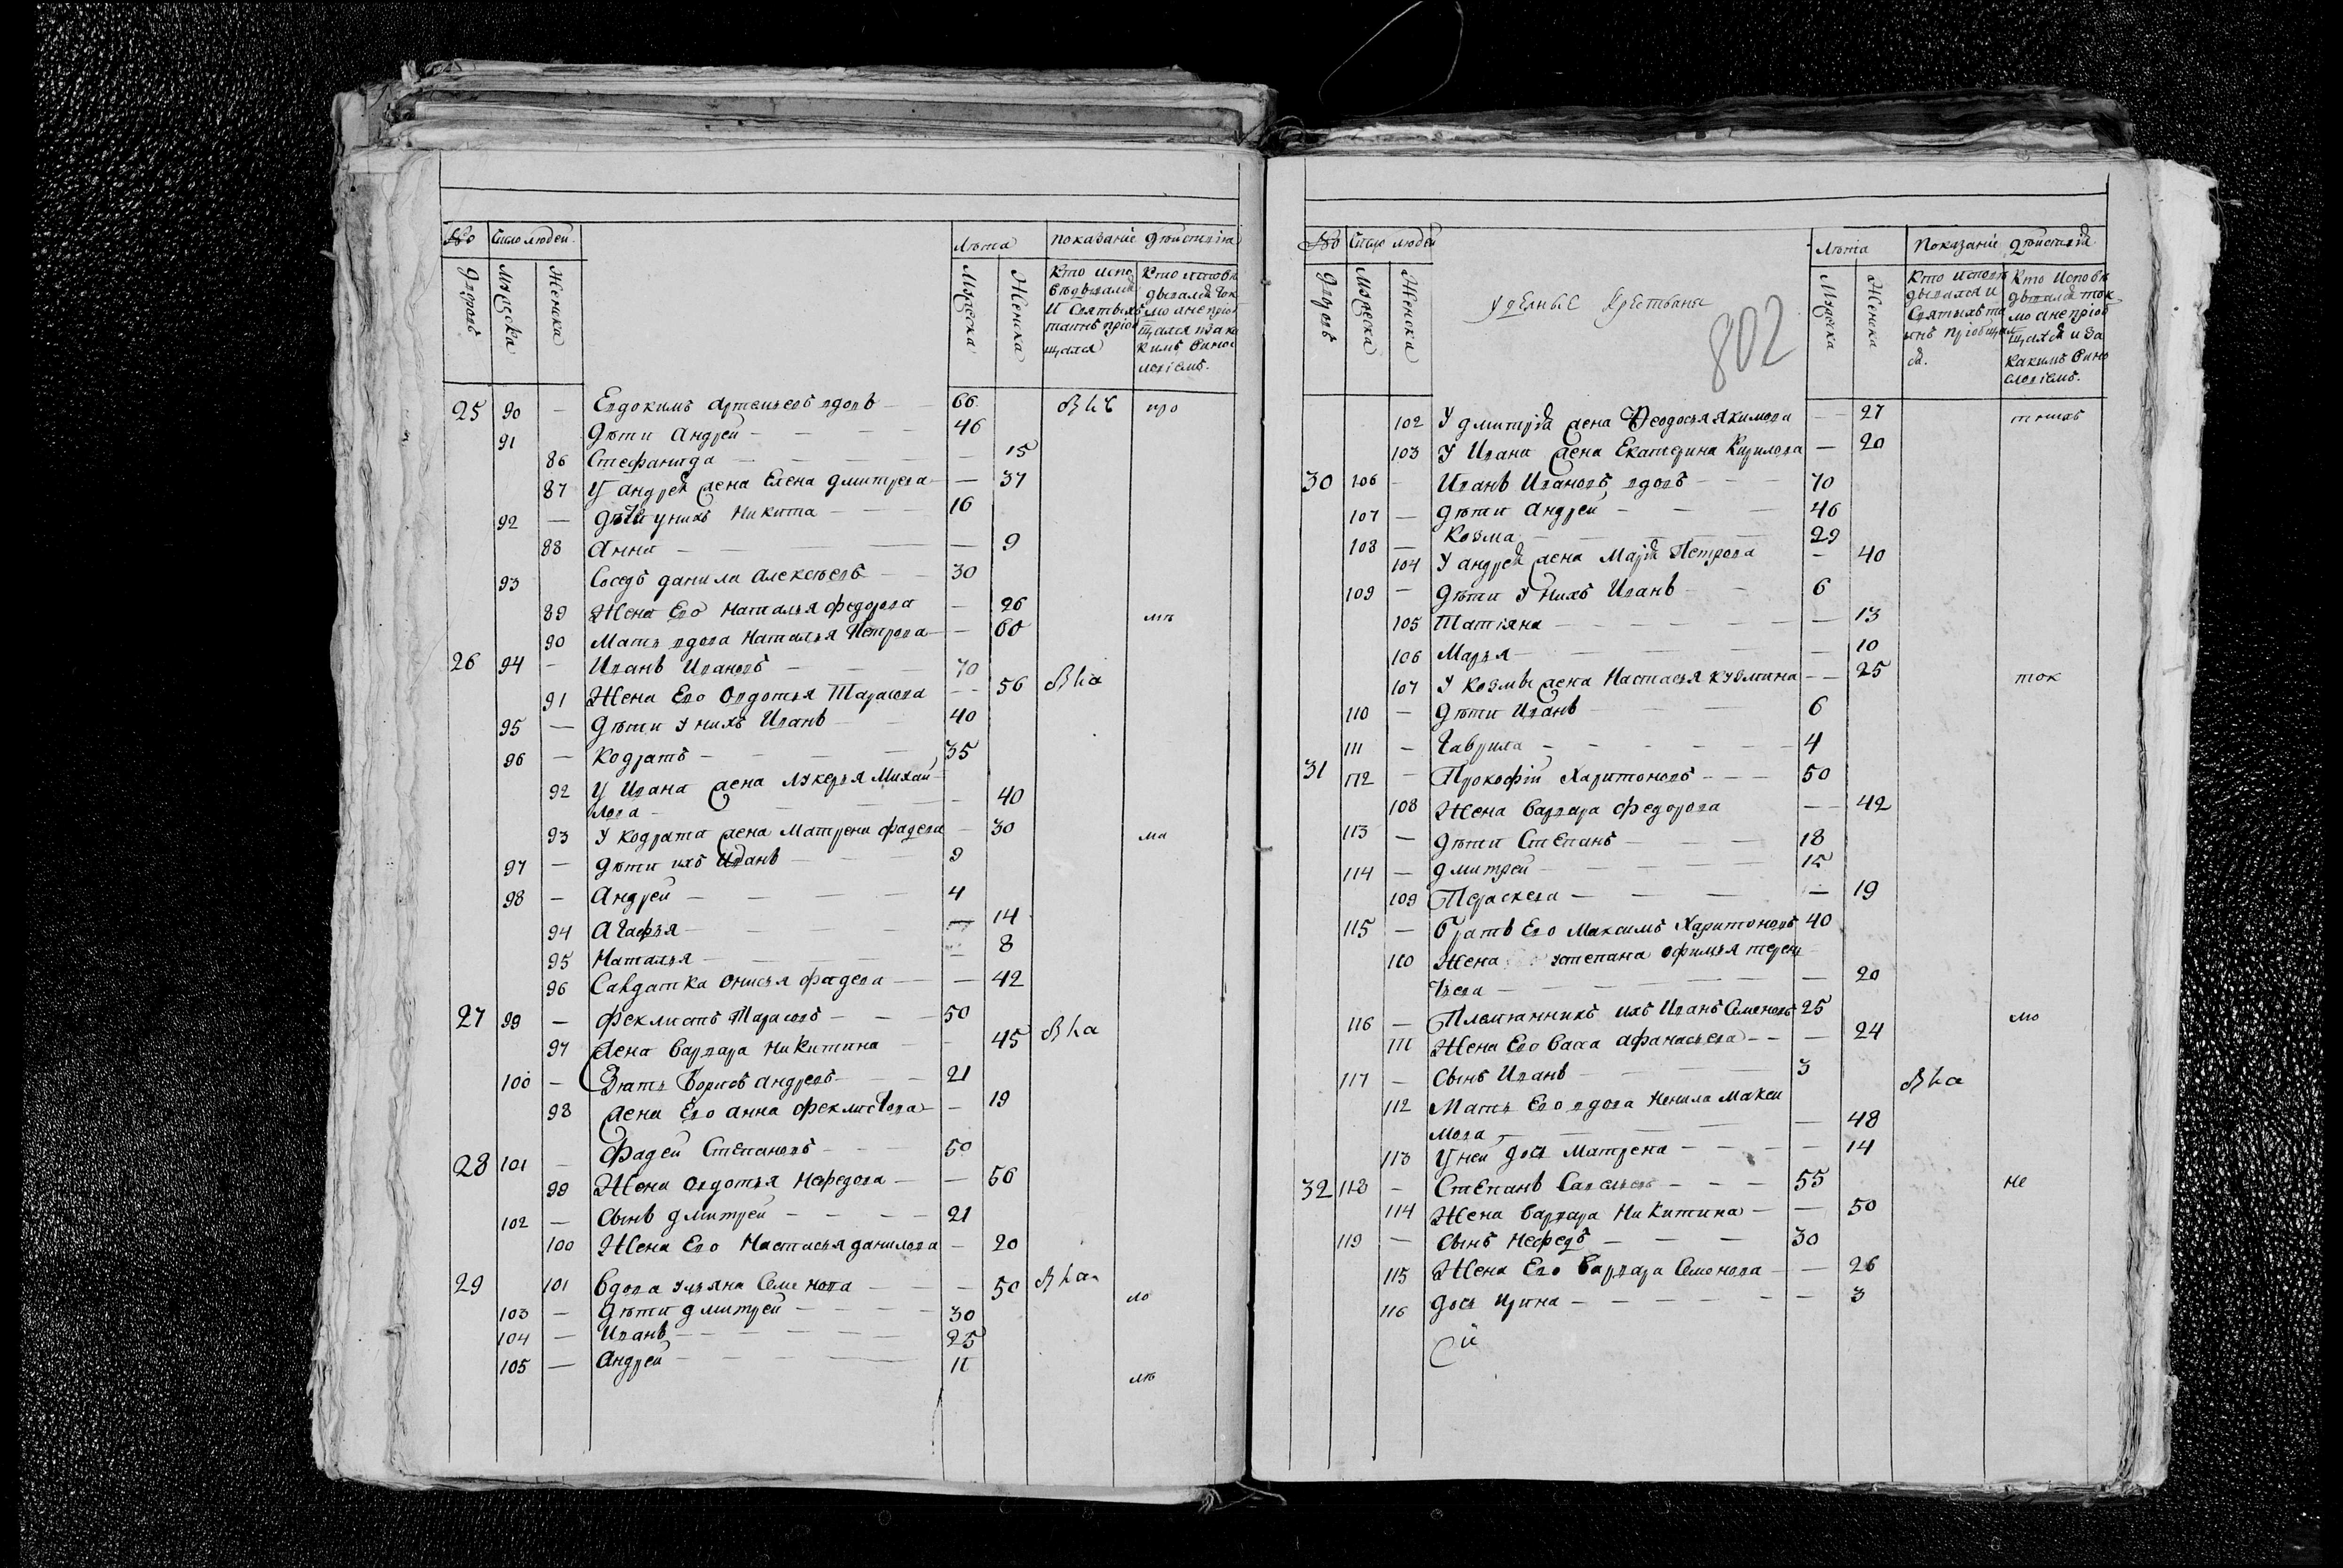 № Число людей. Лѣта показаніе дѣйствія
Дворовъ Мужеска Женска Мужеска Женска Кто испо Кто исповѣ
вѣдывался дывался ток
и Святыхъ мо не пріо
таинъ пріоб щался и за ка
щался кимъ вино
словіемъ.
25 90 — Евдокимъ Артемьевъ вдовъ 66 про
91 Дѣти Андрей — 46
86 Стефанида — 15
87 У андрея жена Елена дмитрева — 37
92 — Дѣти у нихъ Никита — 16
88 Анна — 9
93 Соседъ данила алексѣевъ — 30
89 Жена Ево Наталья федорова — 26
90 Мать вдова Наталья Петрова — 60
26 94 — Иванъ Ивановъ — 70
91 Жена Ево Овдотья Тарасова — 56
95 — Дѣти у нихъ Иванъ — 40
96 — Кодратъ — 35
92 У Ивана жена Лукерья Михай
лова — 40
93 У кодрата жена Матрена фадева — 30
97 — Дѣти ихъ Иванъ — 9
98 — Андрей — 4
94 Агафья — 14
95 Наталья — 8
96 Салдатка Онисья фадева — 42
27 99 — феклистъ Тарасовъ — 50
97 Жена варвара Никитина — 45
100 — Зять Борисъ андревъ — 21
98 жена Ево анна феклистова — 19
28 101 — Фадей Степановъ — 50
99 Жена овдотья Нефедова — 50
102 — Сынъ дмитрей — 21
100 Жена Ево Настасья данилова — 20
29 101 Вдова ульяна Семенова — 50
103 — Дѣти дмитрей — 30
104 — Иванъ — 25
105 — Андрей — 11
№ Число людей удельные Крестьяне Лѣта Показаніе дѣйствія
802
Дворовъ Мужеска Женска Мужеска Женска Кто исповѣ Кто исповѣ
дывался и дывался ток
Святыхъ та мо не пріоб
инъ пріобщал щался и за
ся. какимъ вино
словіемъ.
102 У дмитрія жена Феодосья Якимова — 27
103 У Ивана жена Екатерина Кирилова — 20
30 106 — Иванъ Ивановъ вдовъ — 70
107 — Дѣти Андрей — 46
108 — Козма — 29
104 У андрея жена Марія Петрова — 40
109 — Дѣти у нихъ Иванъ — 6
105 Татіяна — 13
106 Марья — 10
107 У козмы жена Настасья кузмина — 25 ток
110 — Дѣти Иванъ — 6
111 — Гаврила — 4
31 112 — Прокофій Харитоновъ — 50
108 Жена варвара федорова — 42
113 — Дѣти Степанъ — 18
114 — дмитрей — 15
109 Пераскева — 19
115 — братъ Ево Максимъ Харитоновъ 40
110 Жена устепана офимья терен
тьева — 20
116 — Племянникъ ихъ Иванъ Семеновъ 25 мо
111 Жена Ево Васа афанасьева — 24
117 — Сынъ Иванъ — 3
112 Мать Ево вдова Ненила Макси
мова — 48
113 У ней дочь Матрена — 14
32 118 — Степанъ Савельевъ — 55 не
114 Жена варвара Никитина — 50
119 — Сынъ Нефедъ — 30
115 Жена Ево варвара Семенова — 26
116 дочь ирина — 3